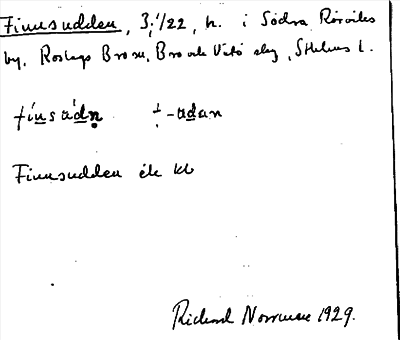 Finnsudden, 3;1/22, h. i Södra Rörviks
by, Roslags Bro sn, Bro och Vätö slg, Sthlms l.
fínsúdn̥ ‡-udan
Finnsudden ek kb
Richard Norrman 1929.